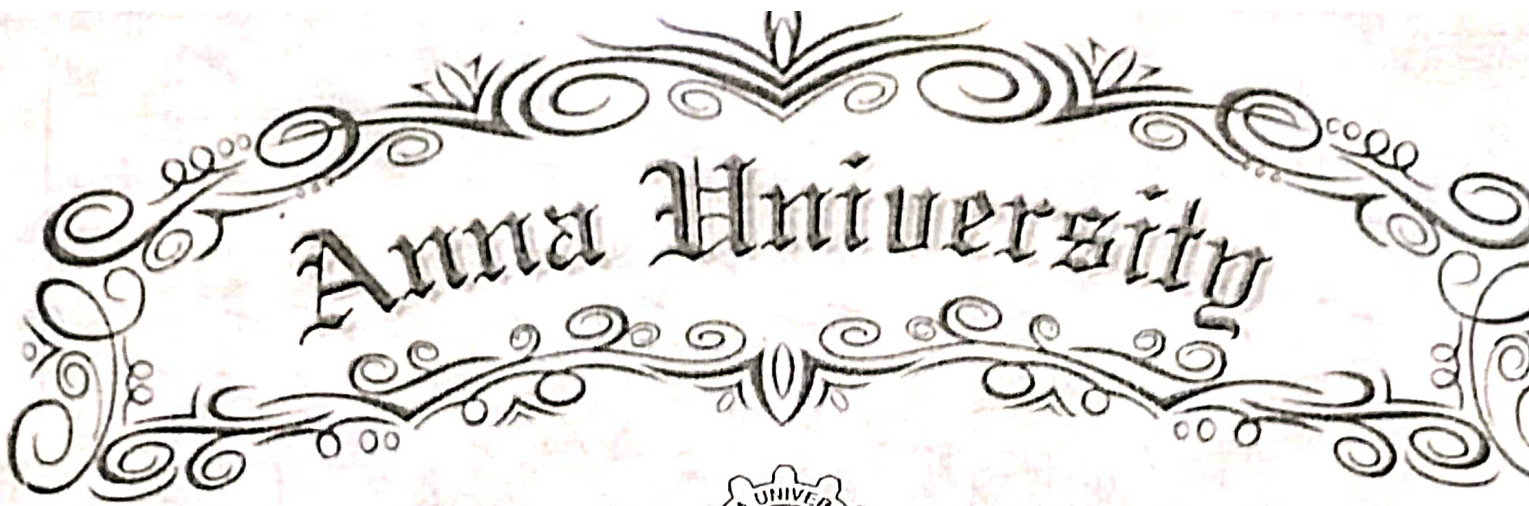 Anna University
UNIVER